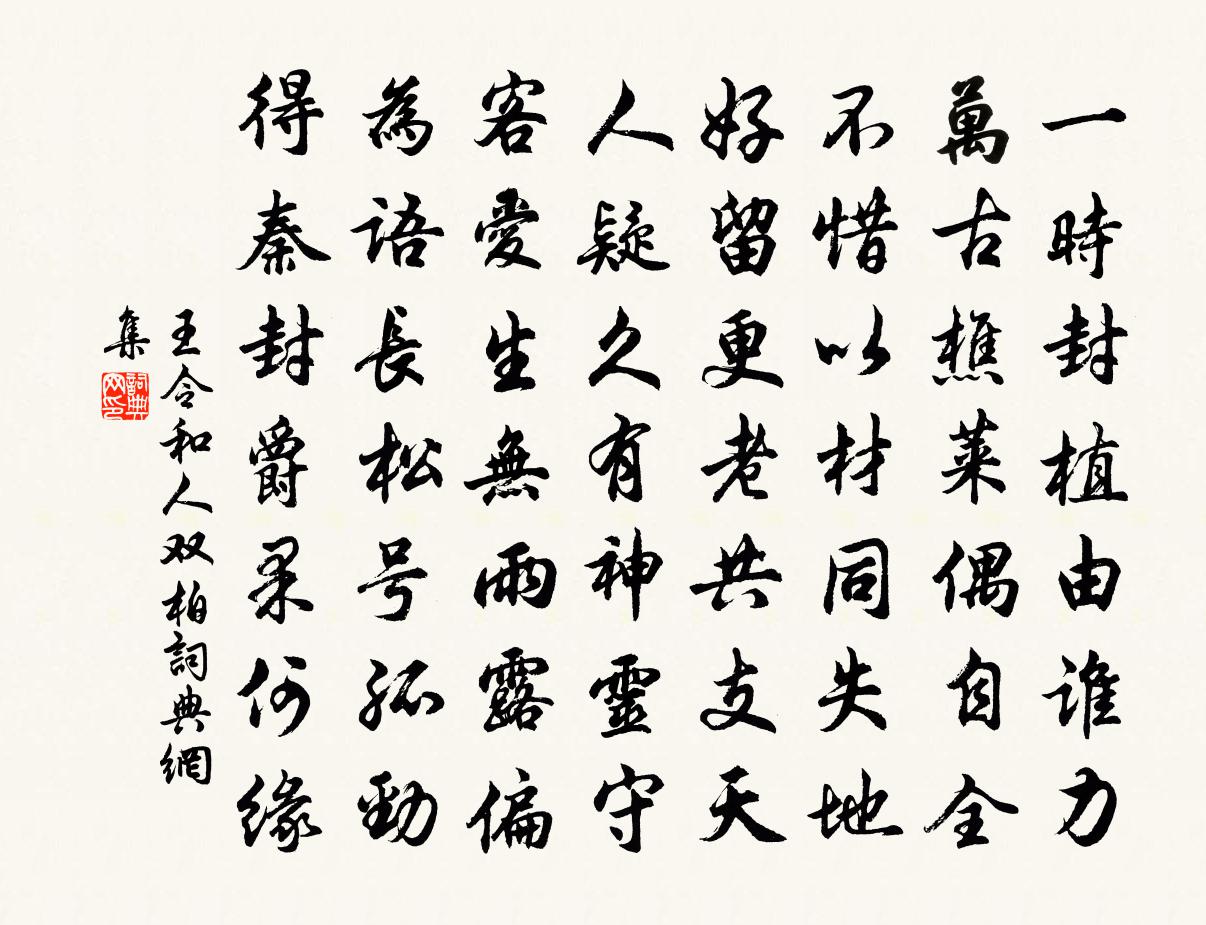 一時封植由谁力
萬古樵菜偶自全
不惜以材同失地
好留更老共支天
人疑久有神靈守
客愛生無雨露偏
為語長松号孤勁
得秦封爵果何緣
王令和人双柏詞典網
集
詞典网印